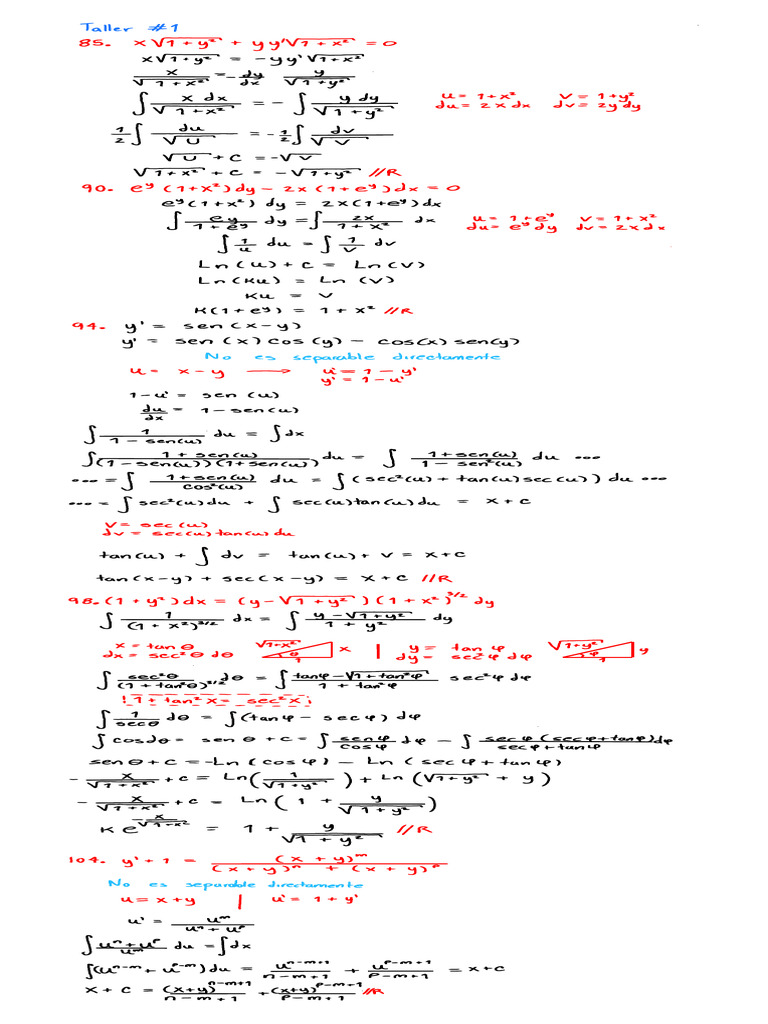 Taller #1
85. x√(1+y²) + yy'√(1+x²) = 0
x√(1+y²) = -yy'√(1+x²)
x/√(1+x²) = -dy/dx y/√(1+y²)
∫ x dx/√(1+x²) = - ∫ y dy/√(1+y²) u = 1+x² v = 1+y²
du = 2x dx dv = 2y dy
1/2 ∫ du/√u = -1/2 ∫ dv/√v
√u + c = -√v
√(1+x²) + c = -√(1+y²) //R
90. e^y (1+x²)dy - 2x(1+e^y)dx = 0
e^y(1+x²) dy = 2x(1+e^y)dx
∫ e^y/(1+e^y) dy = ∫ 2x/(1+x²) dx u = 1+e^y v = 1+x²
du = e^y dy dv = 2x dx
∫ 1/u du = ∫ 1/v dv
Ln(u) + c = Ln(v)
Ln(Ku) = Ln(v)
Ku = v
K(1+e^y) = 1+x² //R
94. y' = sen(x-y)
y' = sen(x)cos(y) - cos(x)sen(y)
No es separable directamente
u = x-y ⟶ u' = 1 - y'
y' = 1 - u'
1-u' = sen(u)
du/dx = 1-sen(u)
∫ 1/(1-sen(u)) du = ∫dx
∫ (1+sen(u))/((1-sen(u))(1+sen(u))) du = ∫ (1+sen(u))/(1-sen²(u)) du ...
... = ∫ (1+sen(u))/cos²(u) du = ∫(sec²(u) + tan(u)sec(u)) du ...
... = ∫sec²(u)du + ∫ sec(u)tan(u)du = x+c
v = sec(u)
dv = sec(u)tan(u)du
tan(u) + ∫ dv = tan(u) + v = x+c
tan(x-y) + sec(x-y) = x+c //R
98. (1+y²)dx = (y-√(1+y²))(1+x²)^(3/2) dy
∫ 1/(1+x²)^(3/2) dx = ∫ (y-√(1+y²))/(1+y²) dy
x = tanθ √(1+x²) x θ 1 | y = tanφ √(1+y²) y φ 1
dx = sec²θ dθ dy = sec²φ dφ
∫ sec²θ/(1+tan²θ)^(3/2) dθ = ∫ (tanφ-√(1+tan²φ))/(1+tan²φ) sec²φ dφ
1 + tan²x = sec²x
∫ 1/secθ dθ = ∫(tanφ - secφ) dφ
∫cosdθ = senθ + c = ∫ senφ/cosφ dφ - ∫ secφ(secφ+tanφ)/(secφ+tanφ) dφ
senθ+c = -Ln(cosφ) - Ln(secφ+tanφ)
-x/√(1+x²) + c = Ln(1/√(1+y²)) + Ln(√(1+y²) + y)
-x/√(1+x²) + c = Ln(1 + y/√(1+y²))
K e^(-x/√(1+x²)) = 1 + y/√(1+y²) //R
104. y'+1 = (x+y)^m/((x+y)^n + (x+y)^p)
No es separable directamente
u = x+y | u' = 1+y'
u' = u^m/(u^n+u^p)
∫ (u^n+u^p)/u^m du = ∫dx
∫(u^(n-m) + u^(p-m))du = u^(n-m+1)/(n-m+1) + u^(p-m+1)/(p-m+1) = x+c
x+c = (x+y)^(n-m+1)/(n-m+1) + (x+y)^(p-m+1)/(p-m+1) //R